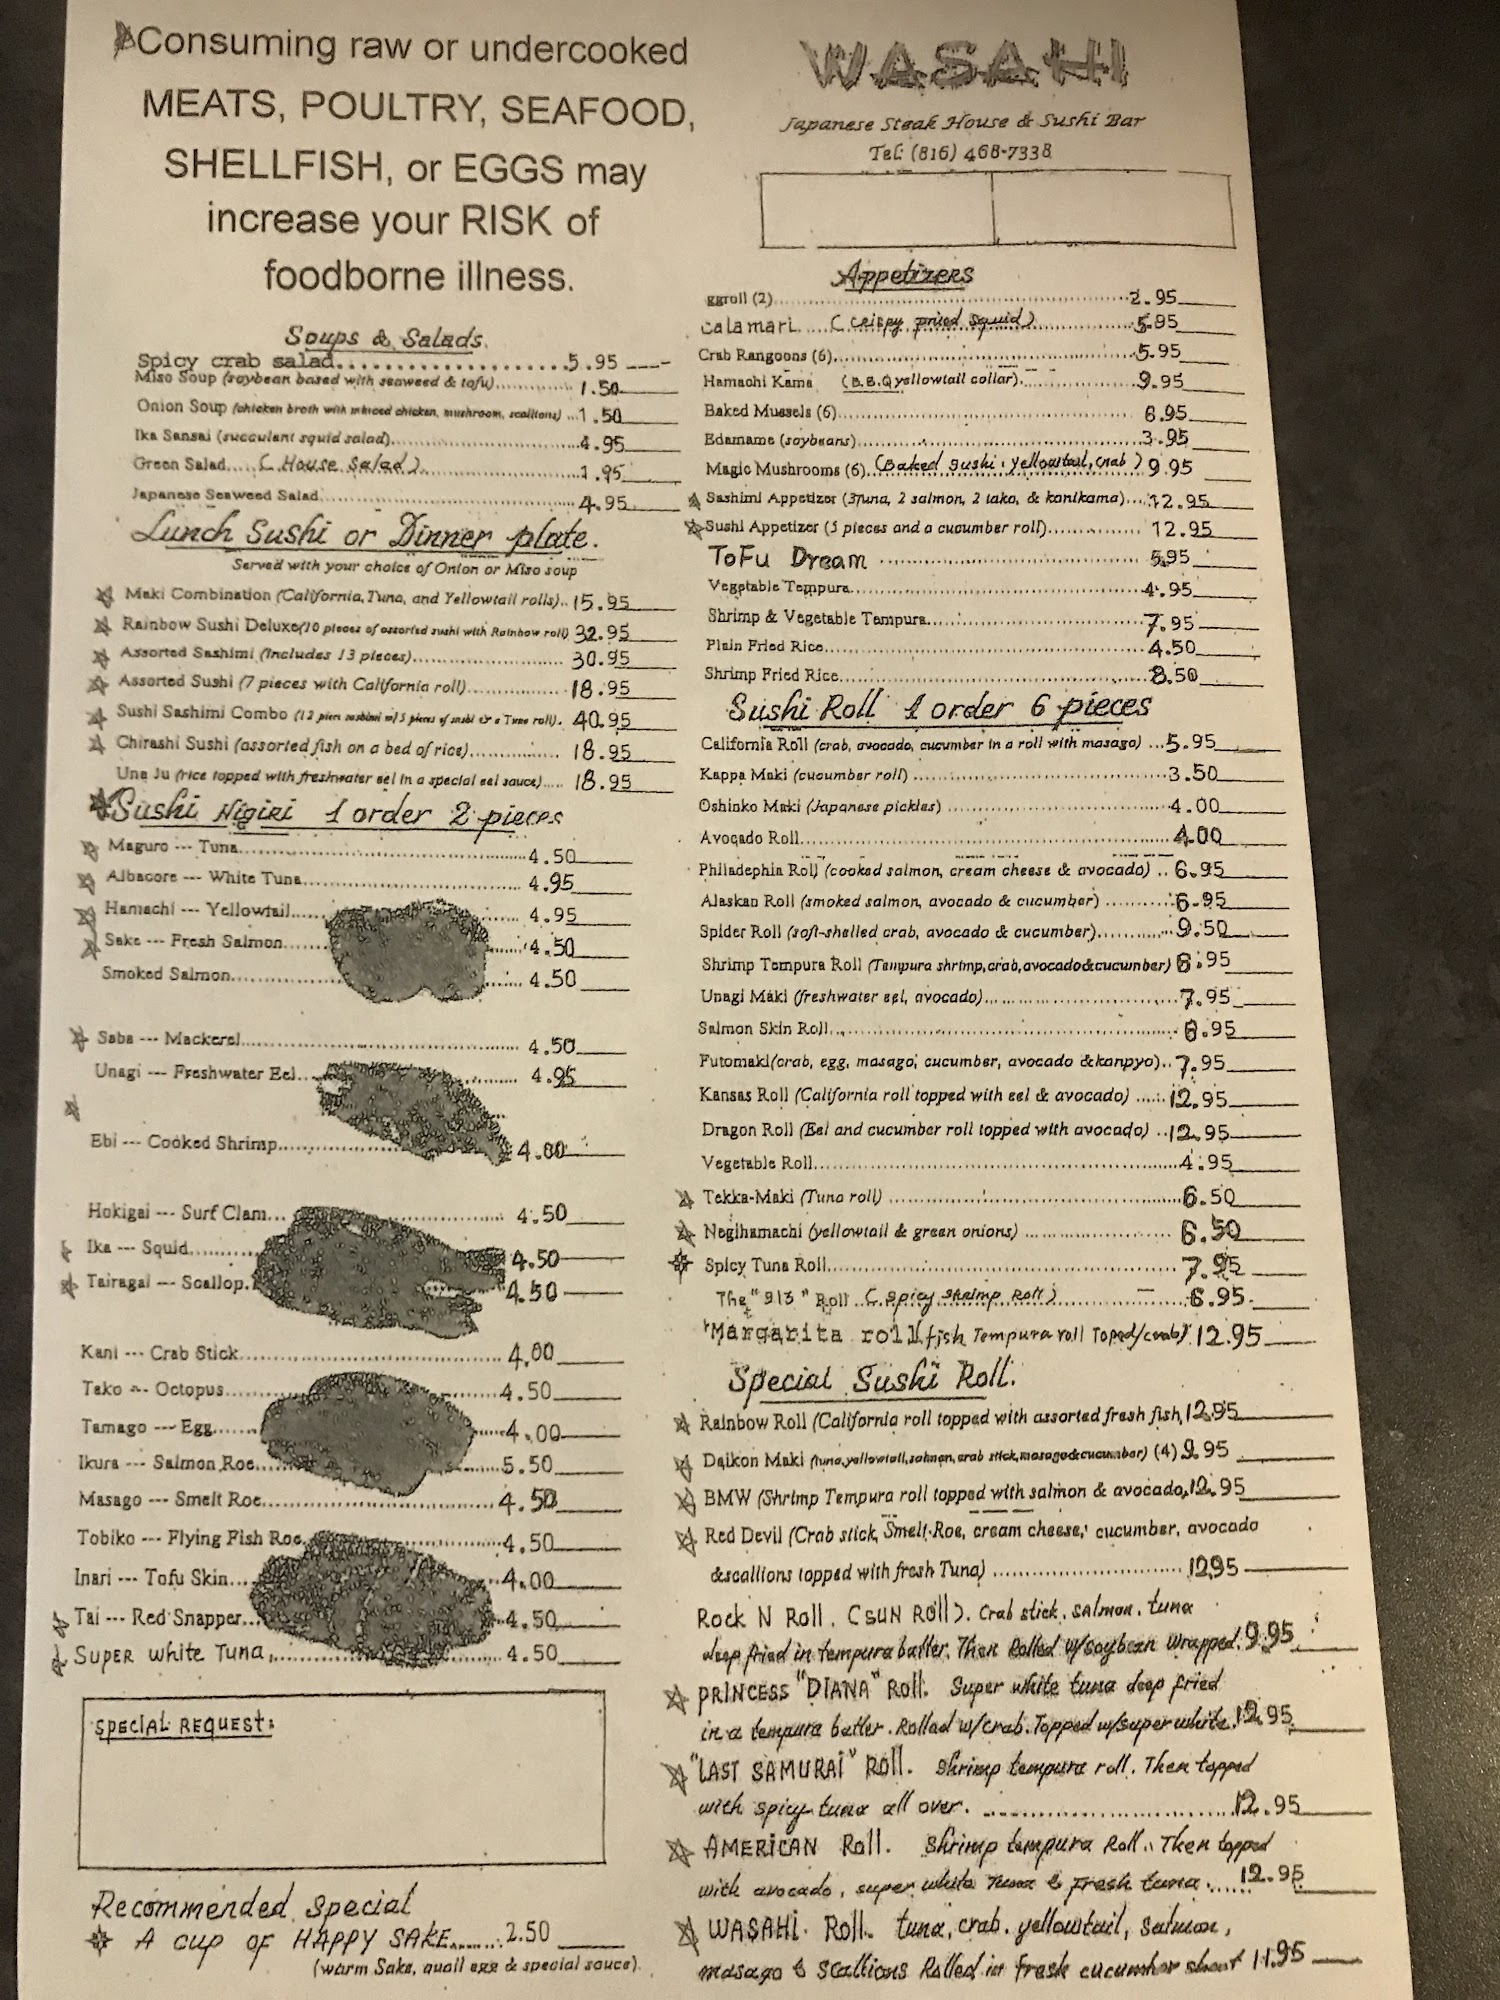 Consuming raw or undercooked
MEATS, POULTRY, SEAFOOD,
SHELLFISH, or EGGS may
increase your RISK of
foodborne illness.
Soups & Salads
Spicy crab salad 5.95
Miso Soup (soybean based with seaweed & tofu) 1.50
Onion Soup (chicken broth with minced chicken, mushroom, scallions) 1.50
Ika Sansai (succulent squid salad) 4.95
Green Salad (House Salad) 1.95
Japanese Seaweed Salad 4.95
Lunch Sushi or Dinner plate.
Served with your choice of Onion or Miso soup
Maki Combination (California, Tuna, and Yellowtail rolls) 15.95
Rainbow Sushi Deluxe (10 pieces of assorted sushi with Rainbow roll) 32.95
Assorted Sashimi (Includes 13 pieces) 30.95
Assorted Sushi (7 pieces with California roll) 18.95
Sushi Sashimi Combo (12 pices sashimi w/5 pieces of sushi & a Tuna roll) 40.95
Chirashi Sushi (assorted fish on a bed of rice) 18.95
Una Ju (rice topped with freshwater eel in a special eel sauce) 18.95
Sushi Nigiri 1 order 2 pieces
Maguro --- Tuna 4.50
Albacore --- White Tuna 4.95
Hamachi --- Yellowtail 4.95
Sake --- Fresh Salmon 4.50
Smoked Salmon 4.50
Saba --- Mackerel 4.50
Unagi --- Freshwater Eel 4.95
Ebi --- Cooked Shrimp 4.00
Hokigai --- Surf Clam 4.50
Ika --- Squid 4.50
Tairagai --- Scallop 4.50
Kani --- Crab Stick 4.00
Tako --- Octopus 4.50
Tamago --- Egg 4.00
Ikura --- Salmon Roe 5.50
Masago --- Smelt Roe 4.50
Tobiko --- Flying Fish Roe 4.50
Inari --- Tofu Skin 4.00
Tai --- Red Snapper 4.50
SUPER white TUNA 4.50
SPECIAL REQUEST:
Recommended Special
A CUP OF HAPPY SAKE 2.50
(warm Sake, quail egg & special sauce).
WASAHI
Japanese Steak House & Sushi Bar
Tel: (816) 468-7338
Appetizers
ggroll (2) 2.95
calamari (crispy fried squid) 5.95
Crab Rangoons (6) 5.95
Hamachi Kama (B.B.Q yellowtail collar) 9.95
Baked Mussels (6) 6.95
Edamame (soybeans) 3.95
Magic Mushrooms (6) (Baked sushi, yellowtail, crab) 9.95
Sashimi Appetizer (3 tuna, 2 salmon, 2 tako, & kanikama) 12.95
Sushi Appetizer (5 pieces and a cucumber roll) 12.95
ToFu Dream 5.95
Vegetable Tempura 4.95
Shrimp & Vegetable Tempura 7.95
Plain Fried Rice 4.50
Shrimp Fried Rice 8.50
Sushi Roll 1 order 6 pieces
California Roll (crab, avocado, cucumber in a roll with masago) 5.95
Kappa Maki (cucumber roll) 3.50
Oshinko Maki (Japanese pickles) 4.00
Avocado Roll 4.00
Philadephia Roll (cooked salmon, cream cheese & avocado) 6.95
Alaskan Roll (smoked salmon, avocado & cucumber) 6.95
Spider Roll (soft-shelled crab, avocado & cucumber) 9.50
Shrimp Tempura Roll (Tempura shrimp, crab, avocado & cucumber) 8.95
Unagi Maki (freshwater eel, avocado) 7.95
Salmon Skin Roll 6.95
Futomaki (crab, egg, masago, cucumber, avocado & kanpyo) 7.95
Kansas Roll (California roll topped with eel & avocado) 12.95
Dragon Roll (Eel and cucumber roll topped with avocado) 12.95
Vegetable Roll 4.95
Tekka-Maki (Tuna roll) 6.50
Negihamachi (yellowtail & green onions) 6.50
Spicy Tuna Roll 7.95
The "913" Roll (spicy shrimp Roll) 6.95
"Margarita roll (fish Tempura roll Toped/crab) 12.95
Special Sushi Roll.
Rainbow Roll (California roll topped with assorted fresh fish, 12.95
Daikon Maki (tuna, yellowtail, salmon, crab stick, masago & cucumber) (4) 9.95
BMW (Shrimp Tempura roll topped with salmon & avocado, 12.95
Red Devil (Crab stick, Smelt Roe, cream cheese, cucumber, avocado
& scallions topped with fresh Tuna) 12.95
ROCK N ROLL. (SUN ROLL). Crab stick, salmon, tuna
deep fried in tempura batter. Then Rolled w/soybean wrapped. 9.95
PRINCESS "DIANA" Roll. Super white tuna deep fried
in a tempura batter. Rolled w/crab. Topped w/super white. 12.95
"LAST SAMURAI" Roll. shrimp tempura roll. Then topped
with spicy tuna all over. 12.95
AMERICAN Roll. shrimp tempura Roll. Then topped
with avocado, super white Tuna & fresh tuna. 12.95
WASAHI Roll. tuna, crab, yellowtail, salmon,
masago & scallions Rolled in fresh cucumber sheet 11.95